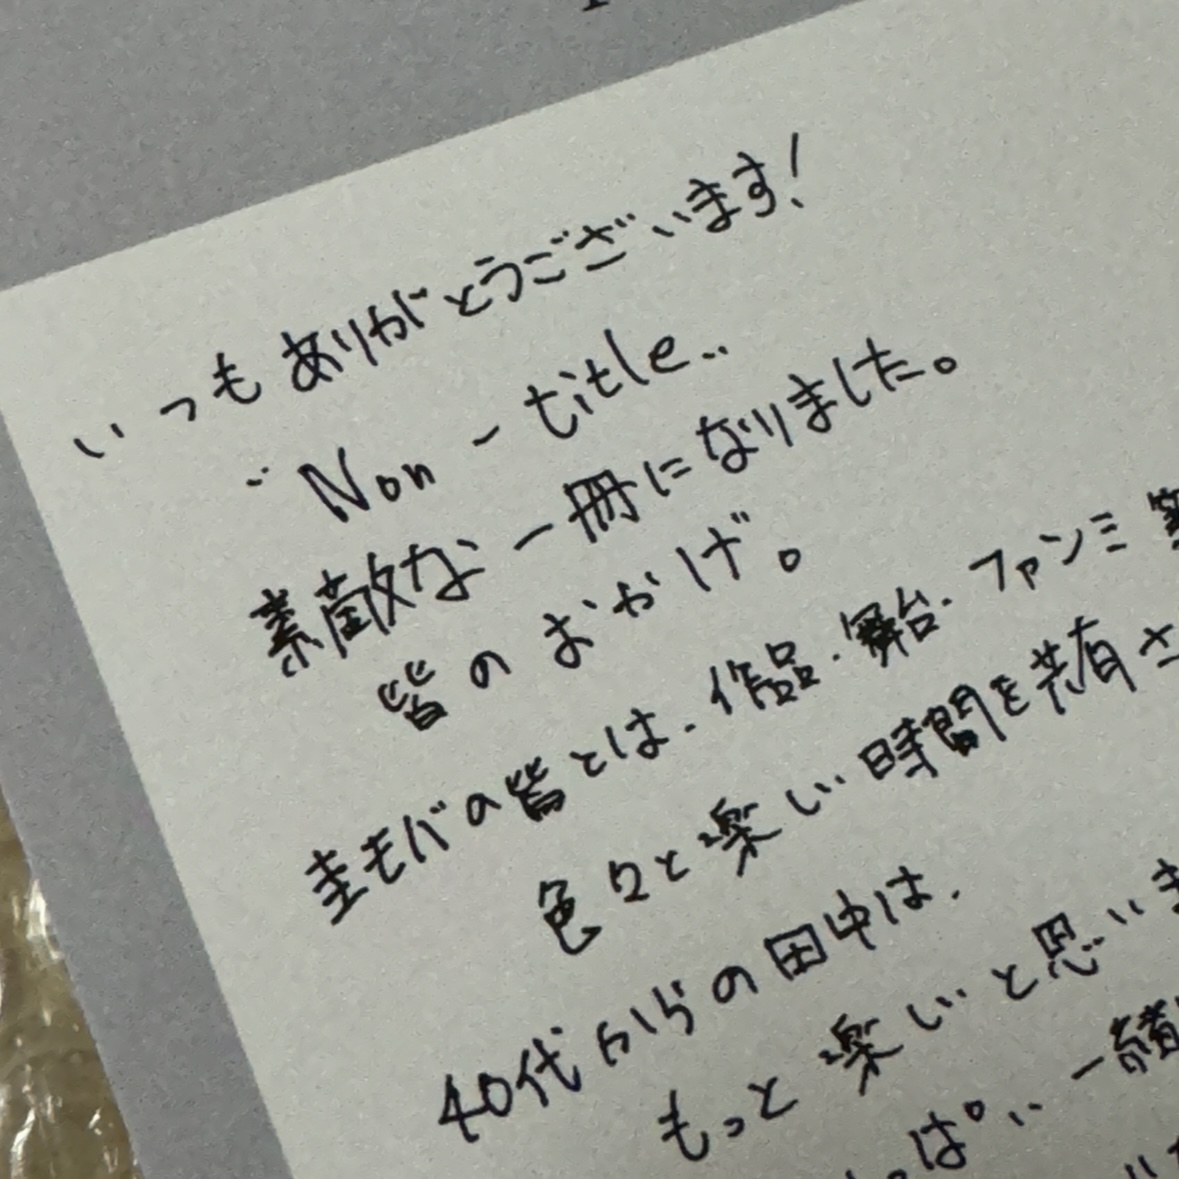 いつもありがとうございます!
"Non-title"
素敵な一冊になりました。
皆のおかげ。
圭モバの皆とは、作品・舞台・ファンミ
色々と楽しい時間を共有さ
40代からの田中は、
もっと楽しいと思いま
っぱい一緒